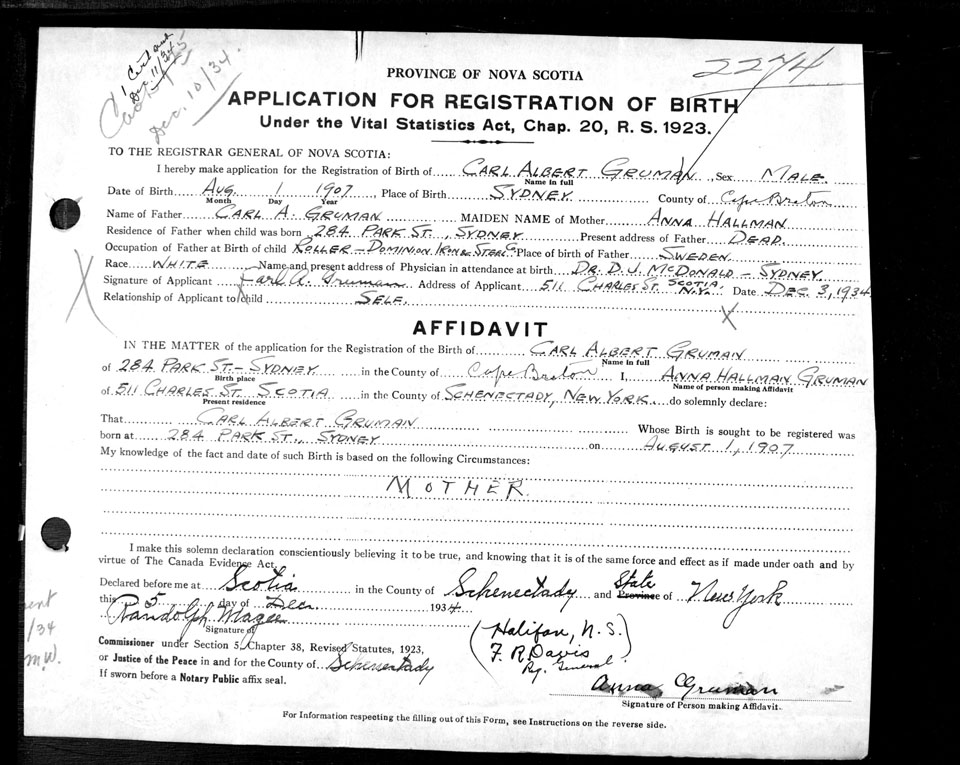 1 Cert and
Dec. 11/34
Dec. 10/34
2274
PROVINCE OF NOVA SCOTIA
APPLICATION FOR REGISTRATION OF BIRTH
Under the Vital Statistics Act, Chap. 20, R. S. 1923.
TO THE REGISTRAR GENERAL OF NOVA SCOTIA:
I hereby make application for the Registration of Birth of CARL ALBERT GRUMAN, Sex MALE
Name in full
Date of Birth AUG 1 1907, Place of Birth SYDNEY County of Cape Breton
Month Day Year
Name of Father CARL A. GRUMAN MAIDEN NAME of Mother ANNA HALLMAN
Residence of Father when child was born 284 PARK ST., SYDNEY Present address of Father DEAD.
Occupation of Father at Birth of child ROLLER - DOMINION IRON & STEEL Co Place of birth of Father SWEDEN
Race WHITE Name and present address of Physician in attendance at birth DR. D. J. MCDONALD - SYDNEY
Signature of Applicant Carl A. Gruman Address of Applicant 511 CHARLES ST. SCOTIA N.Y. Date DEC. 3, 1934
Relationship of Applicant to child SELF
AFFIDAVIT
IN THE MATTER of the application for the Registration of the Birth of CARL ALBERT GRUMAN
Name in full
of 284 PARK ST - SYDNEY in the County of Cape Breton I, ANNA HALLMAN GRUMAN
Birth place Name of person making Affidavit
of 511 CHARLES ST. SCOTIA in the County of SCHENECTADY, NEW YORK do solemnly declare:
Present residence
That CARL ALBERT GRUMAN Whose Birth is sought to be registered was
born at 284 PARK ST., SYDNEY on AUGUST 1, 1907
My knowledge of the fact and date of such Birth is based on the following Circumstances:
MOTHER
I make this solemn declaration conscientiously believing it to be true, and knowing that it is of the same force and effect as if made under oath and by
virtue of The Canada Evidence Act.
Declared before me at Scotia in the County of Schenectady and Province State of New York
this 5 day of Dec 1934
Randolph Magee
Signature of
(Halifax, N. S.)
F. R. Davis
Rg. General.
Commissioner under Section 5, Chapter 38, Revised Statutes, 1923,
or Justice of the Peace in and for the County of Schenectady
If sworn before a Notary Public affix seal.
Anna Gruman
Signature of Person making Affidavit.
For Information respecting the filling out of this Form, see Instructions on the reverse side.
/34
m.W.